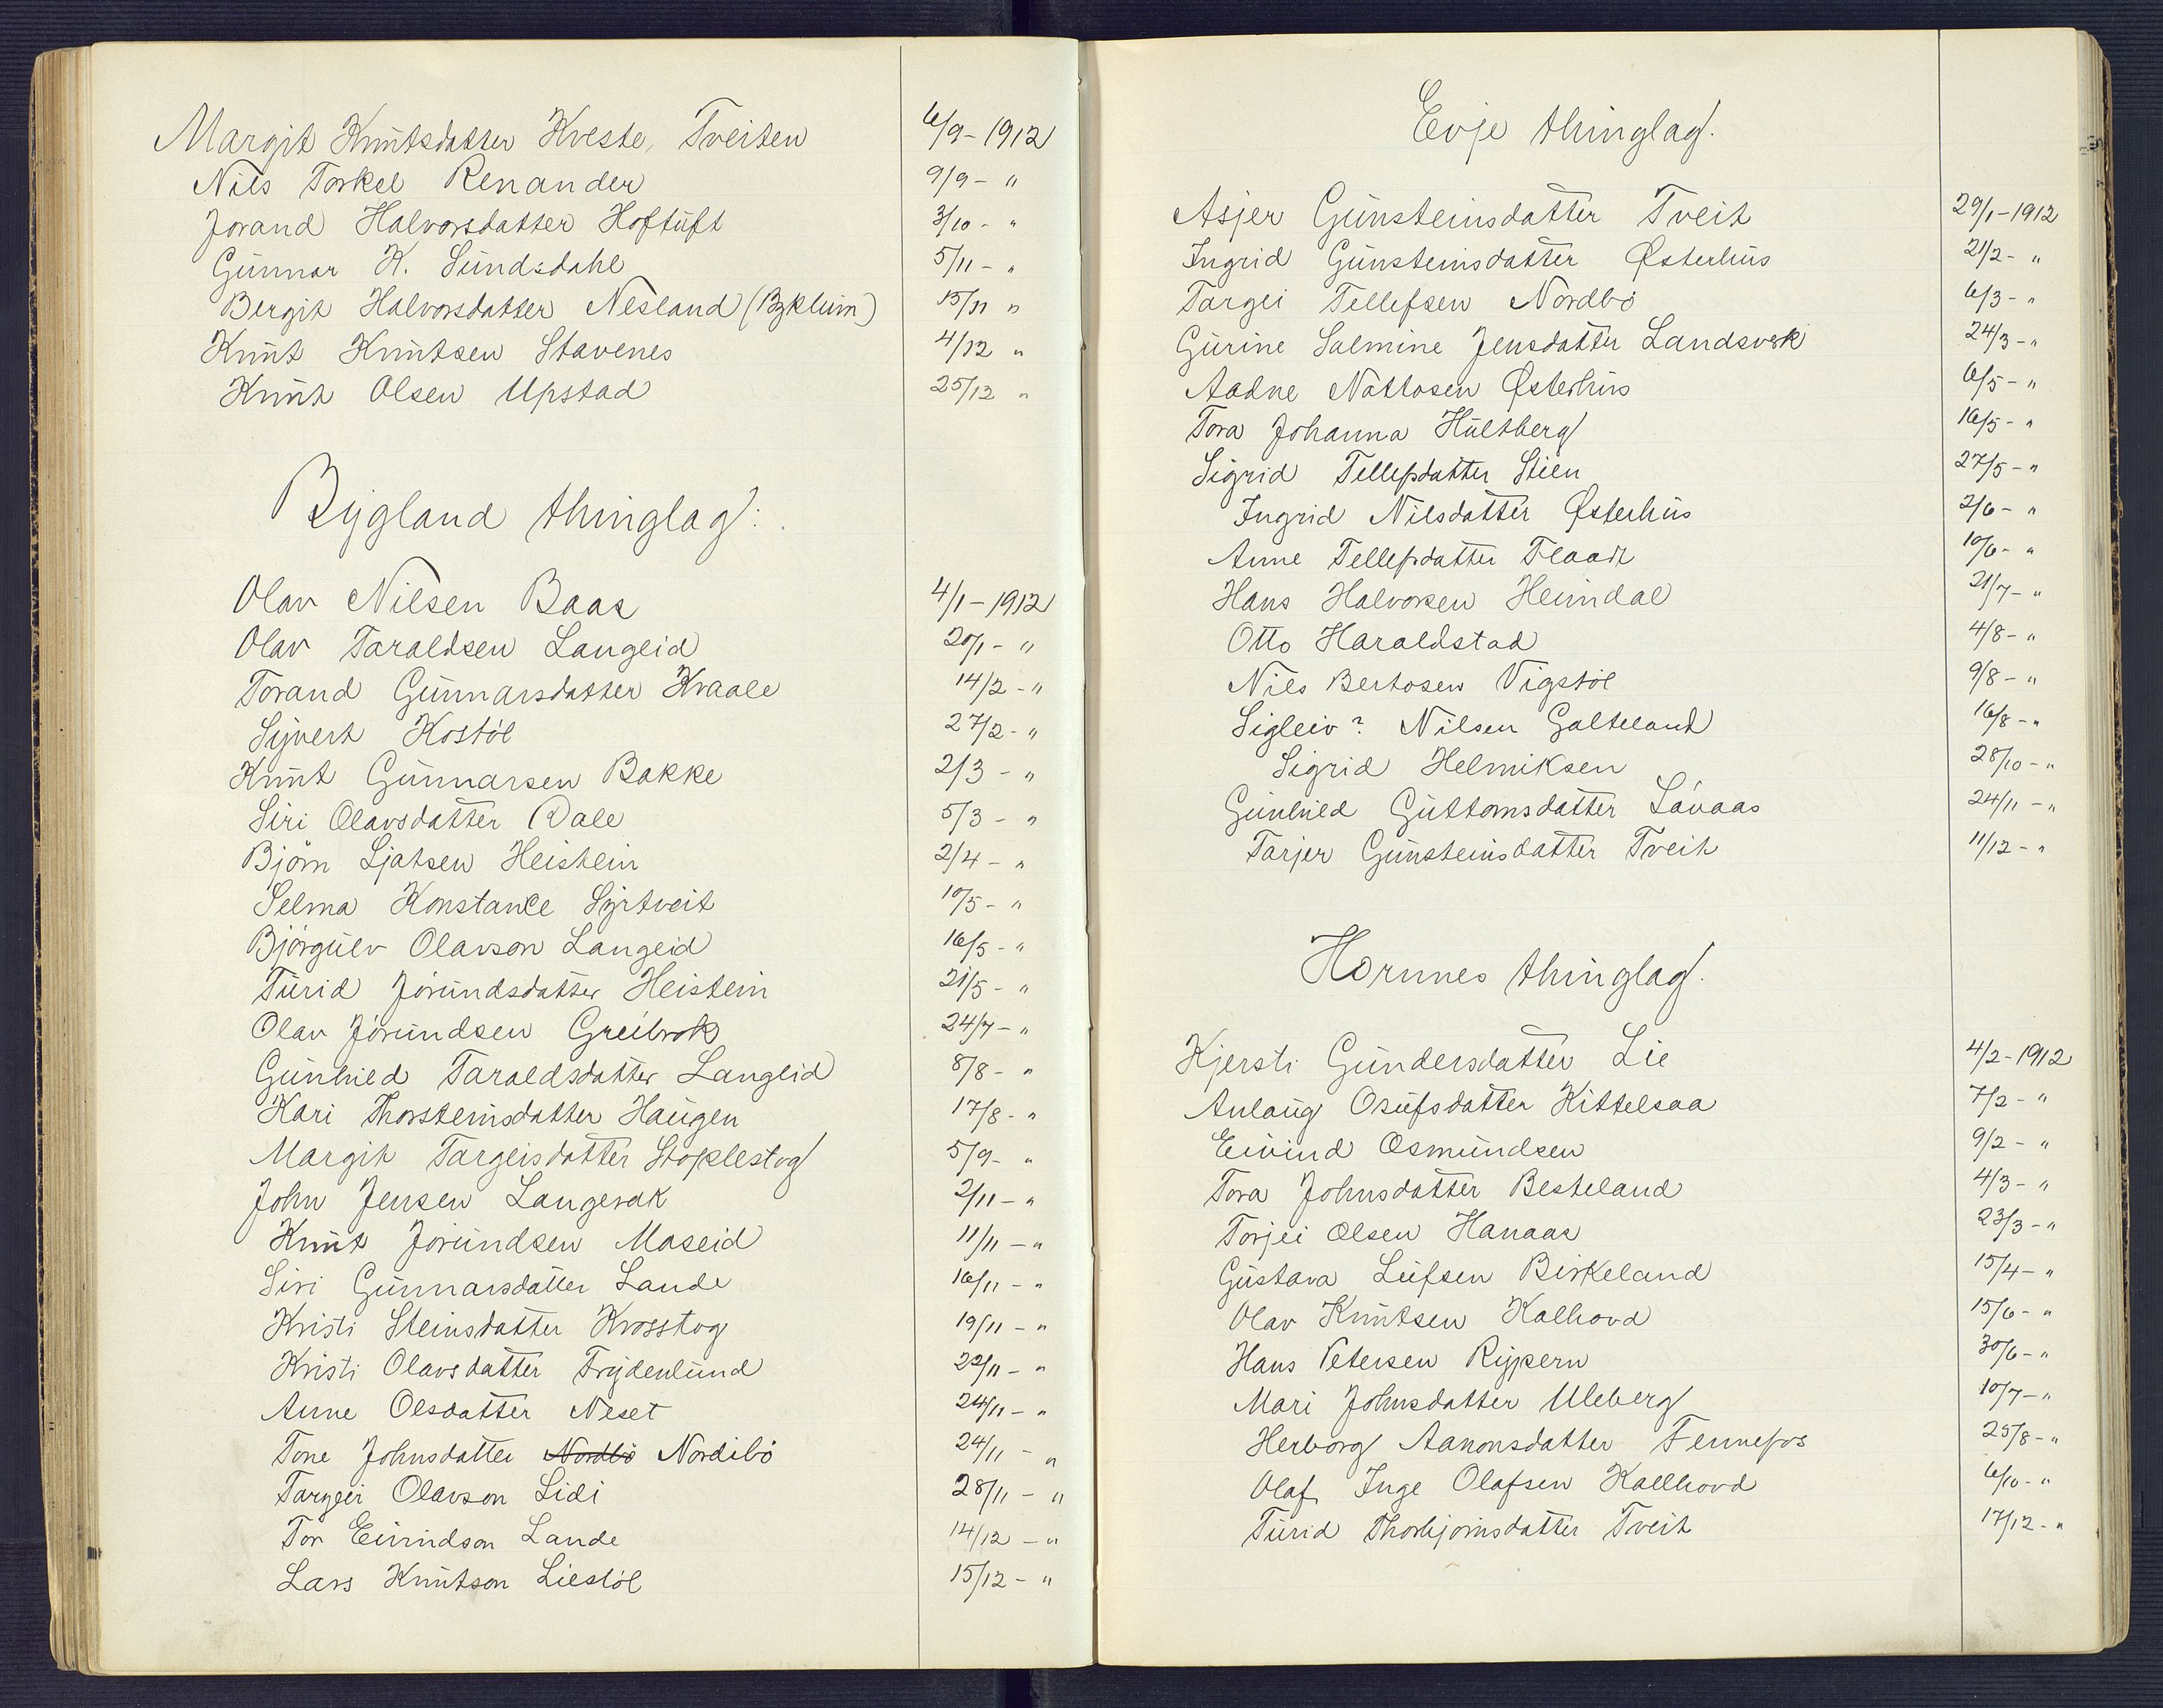 Margit Knutsdatter Kveste, Tveiten 6/9-1912
Nils Torkel Renander 9/9- "
Jorand Halvorsdatter Hoftuft 3/10- "
Gunnar K. Sundsdahl 5/11- "
Bergit Halvorsdatter Nesland (Byklum) 15/11 "
Knut Knutsen Stavenes 4/12 "
Knut Olsen Upstad 25/12 "
Bygland thinglag:
Olav Nilsen Baas 4/1-1912
Olav Taraldsen Langeid 20/1- "
Torand Gunnarsdatter Kvaale 14/2- "
Syvert Kostöl 27/2- "
Knut Gunnarsen Bakke 2/3- "
Siri Olavsdatter Dale 5/3- "
Björn Ljotsen Heistein 2/4- "
Selma Konstance Syrtveit 10/5- "
Björgulv Olavson Langeid 16/5- "
Turid Jörundsdatter Heistein 21/5- "
Olav Jörundsen Greibrok 24/7- "
Gunhild Taraldsdatter Langeid 8/8- "
Kari Thorsteinsdatter Haugen 17/8- "
Margit Targeisdatter Stoplestog 5/9- "
John Jensen Langerak 2/11- "
Knut Jörundsen Moseid 11/11- "
Siri Gunnarsdatter Lande 16/11- "
Kristi Steinsdatter Krosstog 19/11- "
Kristi Olavsdatter Frydenlund 22/11- "
Anne Olsdatter Neset 24/11- "
Tone Johnsdatter Nordbö Nordibö 24/11- "
Targei Olavson Lidi 28/11- "
Tor Eivindson Lande 14/12- "
Lars Knutson Liestöl 15/12- "
Evje thinglag.
Asjer Gunsteinsdatter Tveit 29/1-1912
Ingrid Gunsteinsdatter Østerhus 21/2- "
Targei Tellefsen Nordbö 6/3- "
Gurine Salmine Jensdatter Landsverk 24/3- "
Aadne Nottosen Østerhus 6/5- "
Tora Johanna Hultberg 16/5- "
Sigrid Tellefsdatter Stien 27/5- "
Ingrid Nilsdatter Østerhus 2/6- "
Anne Tellefsdatter Flaat 10/6- "
Hans Halvorsen Heimdal 21/7- "
Otto Haraldstad 4/8- "
Nils Bertosen Vigstöl 9/8- "
Sigleiv? Nilsen Galteland 16/8- "
Sigrid Helmiksen 28/10- "
Gunhild Guttomsdatter Låvaas 24/11- "
Tarjer Gunsteinsdatter Tveit 11/12- "
Hornnes thinglag.
Kjersti Gundersdatter Lie 4/2-1912
Anlaug Osufsdatter Kittelsaa 7/2- "
Eivind Osmundsen 9/2- "
Tora Johnsdatter Besteland 4/3- "
Torjei Olsen Hanaas 23/3- "
Gustava Leifsen Birkeland 15/4- "
Olav Knutsen Kalhovd 15/6- "
Hans Petersen Rypern 30/6- "
Mari Johnsdatter Uleberg 10/7- "
Herborg Aanonsdatter Fennefos 25/8- "
Olaf Inge Olafsen Kallhovd 6/10- "
Turid Thorbjornsdatter Tveit 17/12- "